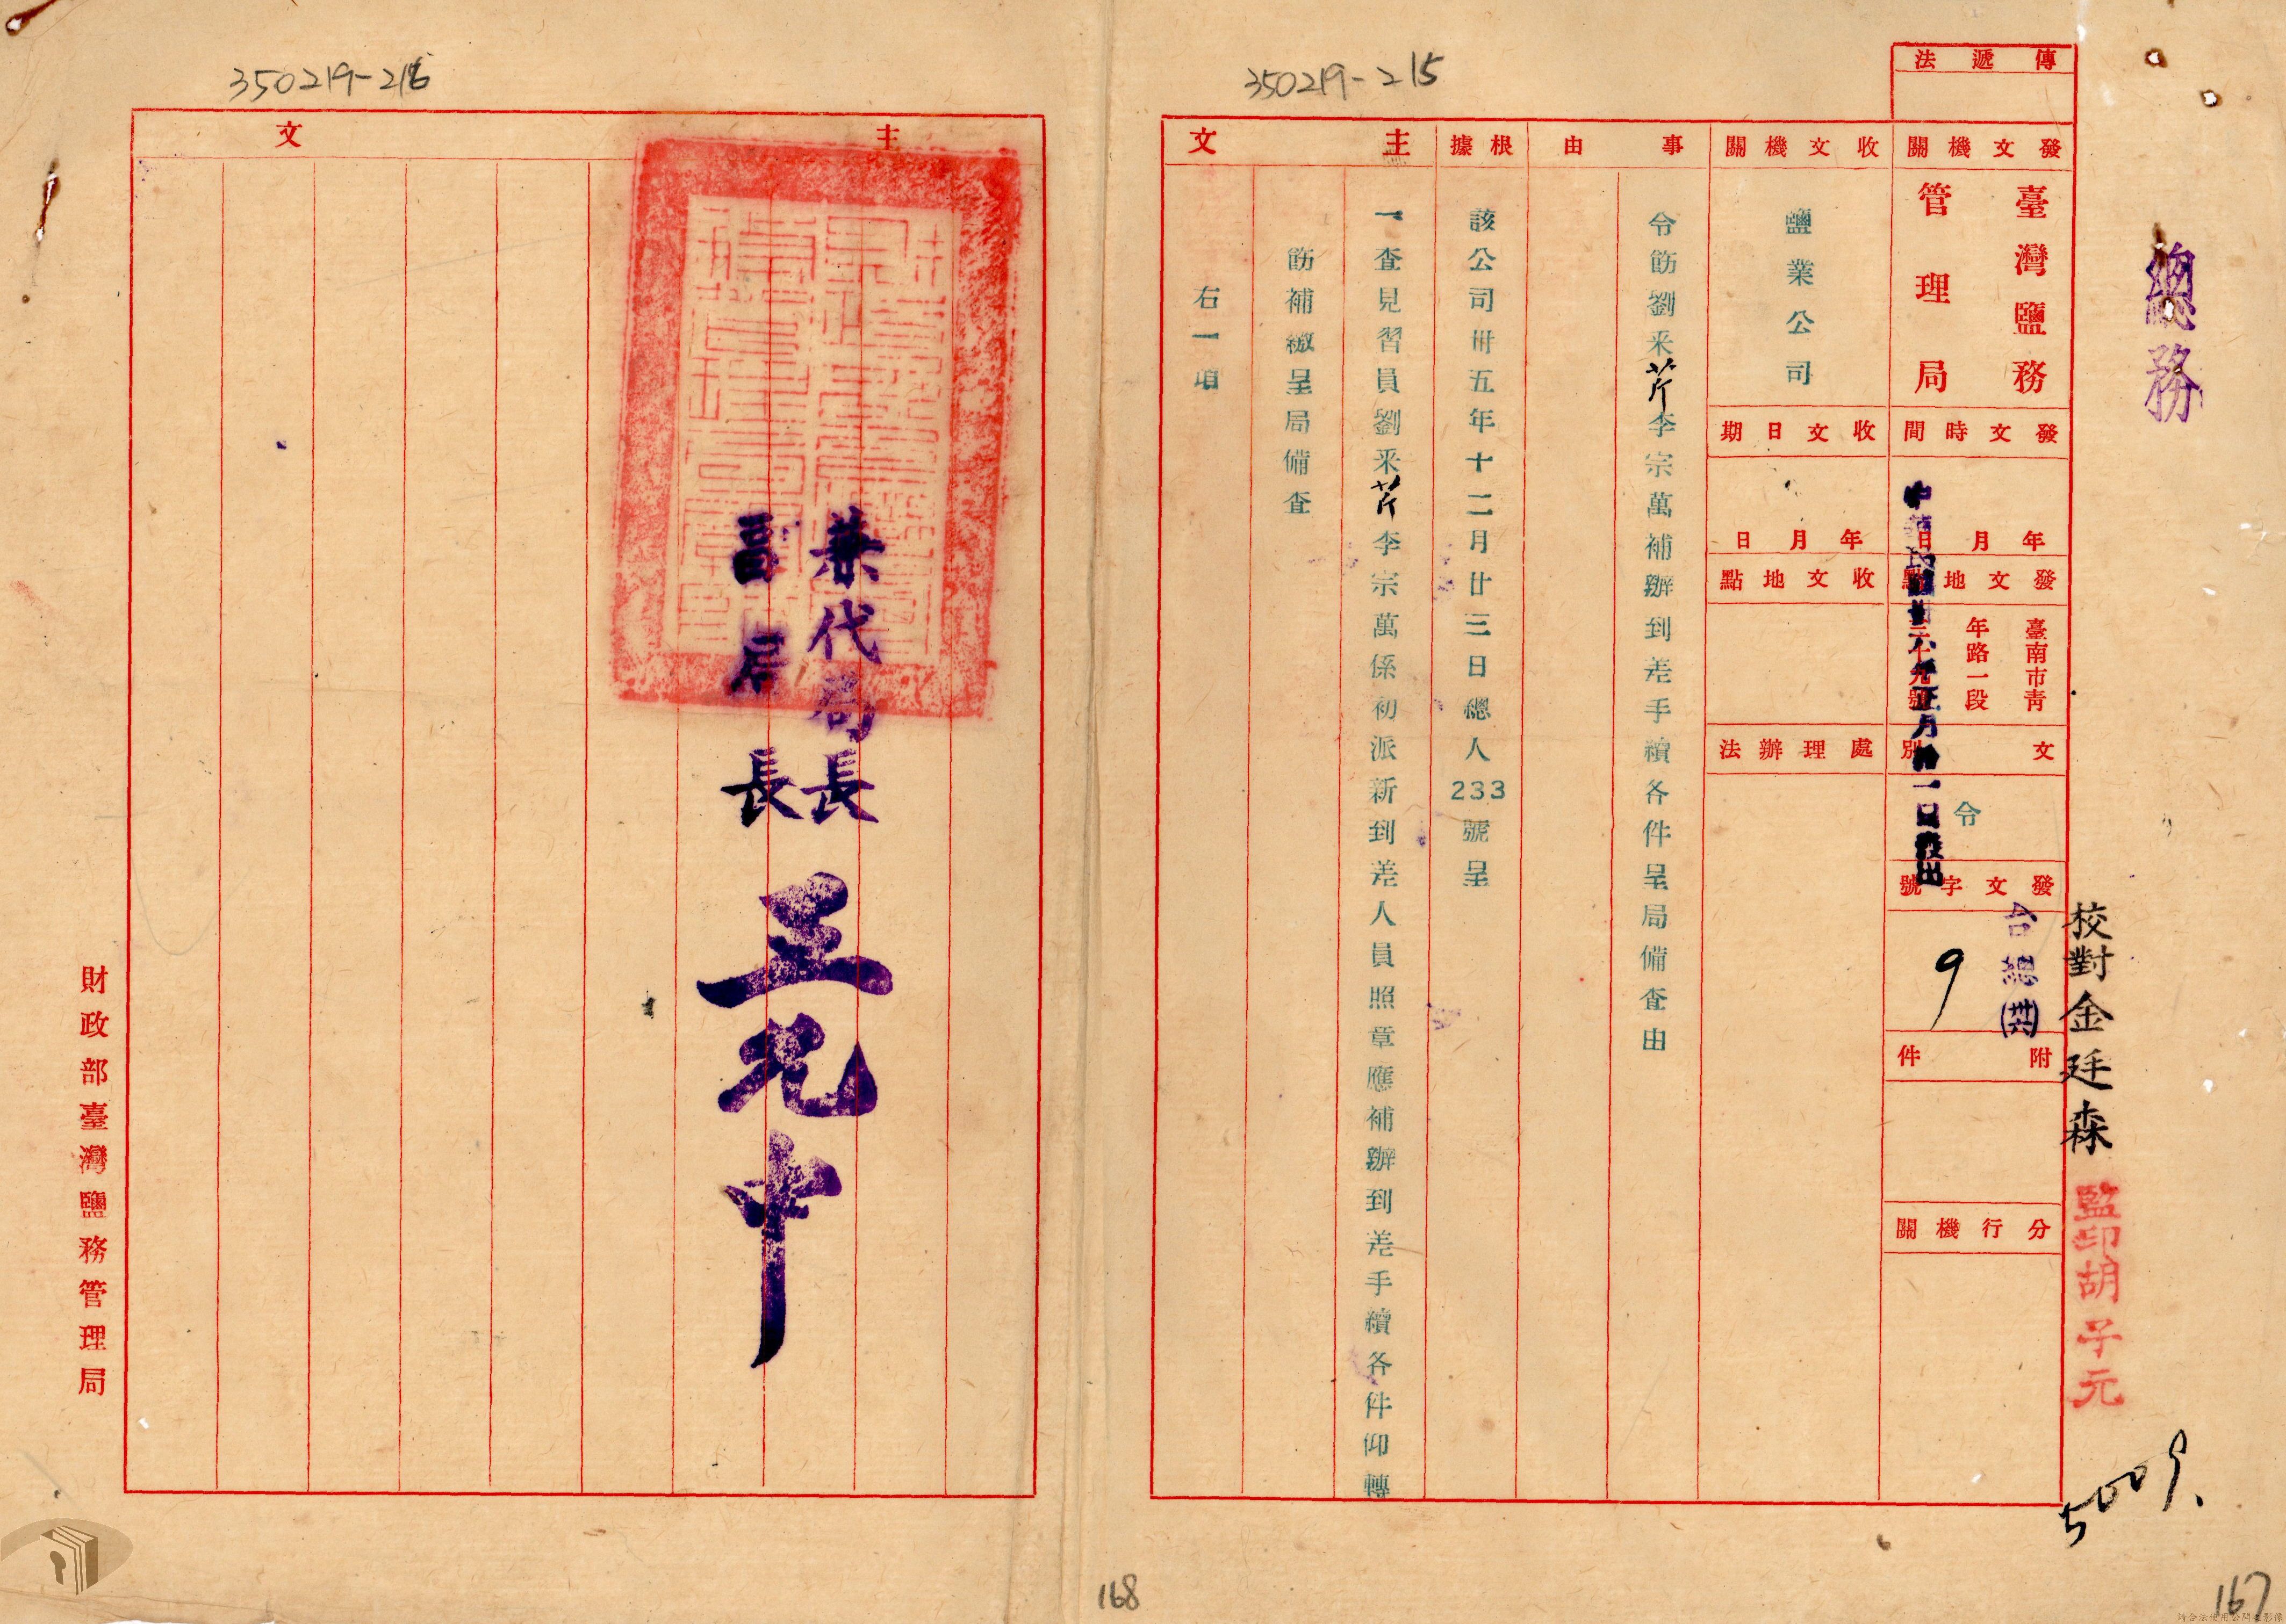 350219-215
總務
傳遞法
發文機關
臺灣鹽務
管理局
發文時間
年月日
中華民國卅六年正月拾一日發出
發文地點
臺南市青
年路一段
文別
令
發文字號
台總(卅六)
9
附件
分行機關
校對金廷森
監印胡子元
5009.
收文機關
鹽業公司
收文日期
年月日
收文地點
處理辦法
事由
令飭劉采芹李宗萬補辦到差手續各件呈局備查由
根據
該公司卅五年十二月廿三日總人233號呈
主文
一查見習員劉采芹李宗萬係初派新到差人員照章應補辦到差手續各件仰轉
飭補繳呈局備查
右一項
167
350219-216
主文
兼代局長
副局長
王允中
財政部臺灣鹽務管理局
168